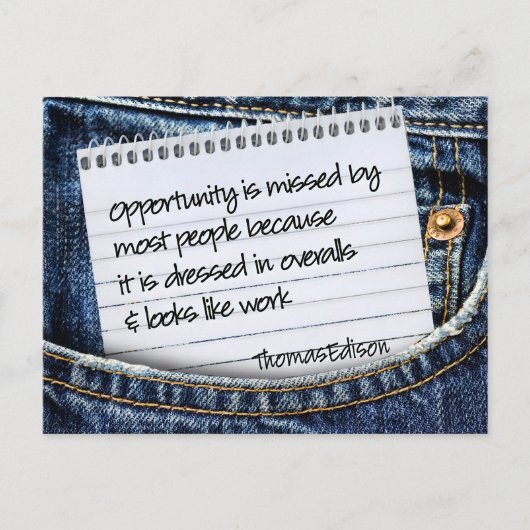 Opportunity is missed by
most people because
it is dressed in overalls
& looks like work
Thomas Edison